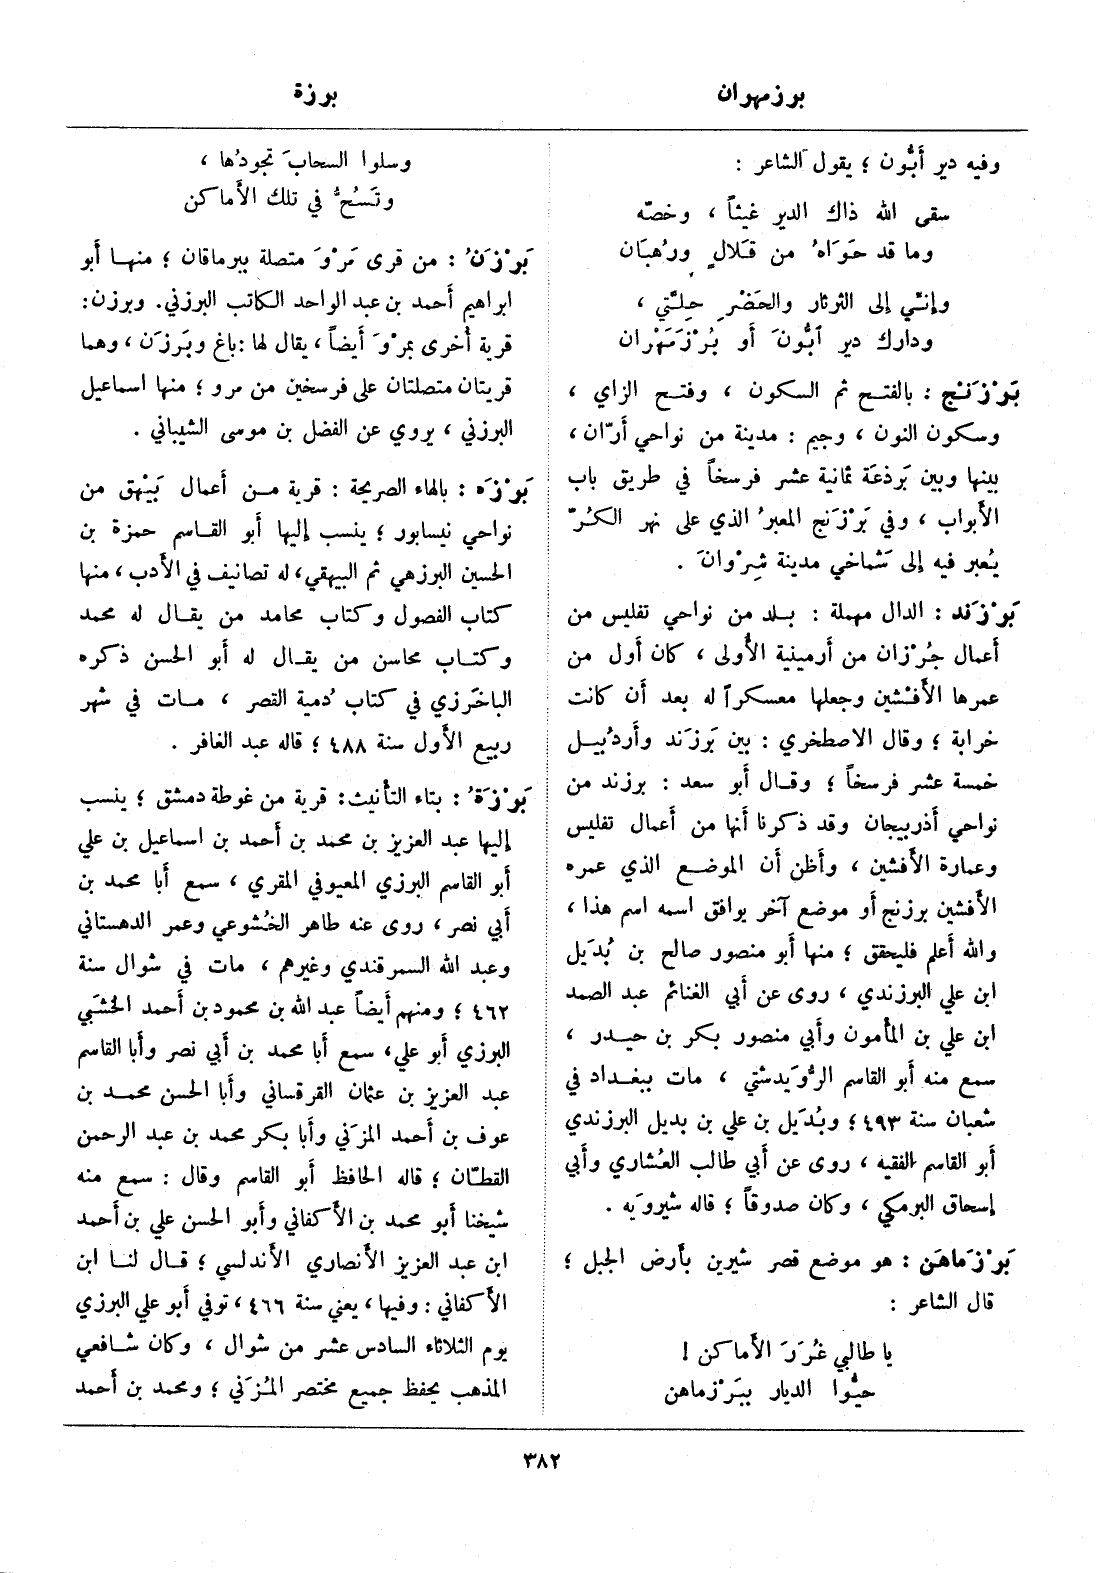 برزمهران
برزة
وفيه دير أَبُّون ؛ يقول الشاعر :
سقى الله ذاك الدير غيثاً ، وخصّه
وما قد حَوَاهُ من قَلالٍ ورُهبَان
وإنّي إلى الثرثار والحَضْرِ حِلّتي ،
ودارك دير أبُّونَ أو بُرْزَمَهْران
بَرْزَنْج : بالفتح ثم السكون ، وفتح الزاي ،
وسكون النون ، وجيم : مدينة من نواحي أرّان ،
بينها وبين بَرذعَة ثمانية عشر فرسخاً في طريق باب
الأبواب ، وفي بَرْزَنج المعبرُ الذي على نهر الكُرّ
يُعبر فيه إلى شَماخي مدينة شِرْوانَ .
بَرْزَند : الدال مهملة : بلد من نواحي تفليس من
أعمال جُرْزان من أرمينية الأُولى ، كان أول من
عمرها الأفْشين وجعلها معسكراً له بعد أن كانت
خرابة ؛ وقال الاصطخري : بين بَرزَند وأردُبيل
خمسة عشر فرسخاً ؛ وقال أبو سعد : برزند من
نواحي أذربيجان وقد ذكرنا أنها من أعمال تفليس
وعمارة الأفشين ، وأظن أن الموضع الذي عمره
الأفشين برزنج أو موضع آخر يوافق اسمه اسم هذا ،
والله أعلم فليحقق ؛ منها أبو منصور صالح بن بُدَيل
ابن علي البرزندي ، روى عن أبي الغنائم عبد الصمد
ابن علي بن المأمون وأبي منصور بكر بن حيدر ،
سمع منه أبو القاسم الرُّوَيدشتي ، مات ببغداد في
شعبان سنة ٤٩٣ ؛ وبُدَيل بن علي بن بديل البرزندي
أبو القاسم الفقيه ، روى عن أبي طالب العُشاري وأبي
إسحاق البرمكي ، وكان صدوقاً ؛ قاله شيرويه .
بَرْزَماهَن : هو موضع قصر شيرين بأرض الجبل ؛
قال الشاعر :
يا طالبي غُرَرَ الأَماكن !
حيُّوا الديار ببَرْزماهن
وسلوا السحابَ تجودُها ،
وتَسُحُّ في تلك الأَماكن
بَرْزَنُ : من قرى مَرْوَ متصلة ببرماقان ؛ منها أبو
ابراهيم أحمد بن عبد الواحد الكاتب البرزني. وبرزن:
قرية أُخرى بمرْوَ أيضاً ، يقال لها : باغ وبَرزَن ، وهما
قريتان متصلتان على فرسخين من مرو ؛ منها اسماعيل
البرزني ، يروي عن الفضل بن موسى الشيباني .
بَرْزَه : بالهاء الصريحة : قرية من أعمال بَيْهق من
نواحي نيسابور ؛ ينسب إليها أبو القاسم حمزة بن
الحسين البرزهي ثم البيهقي ، له تصانيف في الأدب ، منها
كتاب الفصول وكتاب محامد من يقال له محمد
وكتاب محاسن من يقال له أبو الحسن ذكره
الباخَرزي في كتاب دُمية القصر ، مات في شهر
ربيع الأول سنة ٤٨٨ ؛ قاله عبد الغافر .
بَرْزَةُ : بتاء التأنيث: قرية من غوطة دمشق ؛ ينسب
إليها عبد العزيز بن محمد بن أحمد بن اسماعيل بن علي
أبو القاسم البرزي المعيوفي المقري ، سمع أبا محمد بن
أبي نصر ، روى عنه طاهر الخُشوعي وعمر الدهستاني
وعبد الله السمرقندي وغيرهم ، مات في شوال سنة
٤٦٢ ؛ ومنهم أيضاً عبد الله بن محمود بن أحمد الخشَبي
البرزي أبو علي ، سمع أبا محمد بن أبي نصر وأبا القاسم
عبد العزيز بن عثمان القرقساني وأبا الحسن محمد بن
عوف بن أحمد المزَني وأبا بكر محمد بن عبد الرحمن
القطّان ؛ قاله الحافظ أبو القاسم وقال : سمع منه
شيخنا أبو محمد بن الأكفاني وأبو الحسن علي بن أحمد
ابن عبد العزيز الأنصاري الأندلسي ؛ قال لنا ابن
الأكفاني : وفيها ، يعني سنة ٤٦٦ ، توفي أبو علي البرزي
يوم الثلاثاء السادس عشر من شوال ، وكان شافعي
المذهب يحفظ جميع مختصر المُزَني ؛ ومحمد بن أحمد
٣٨٢